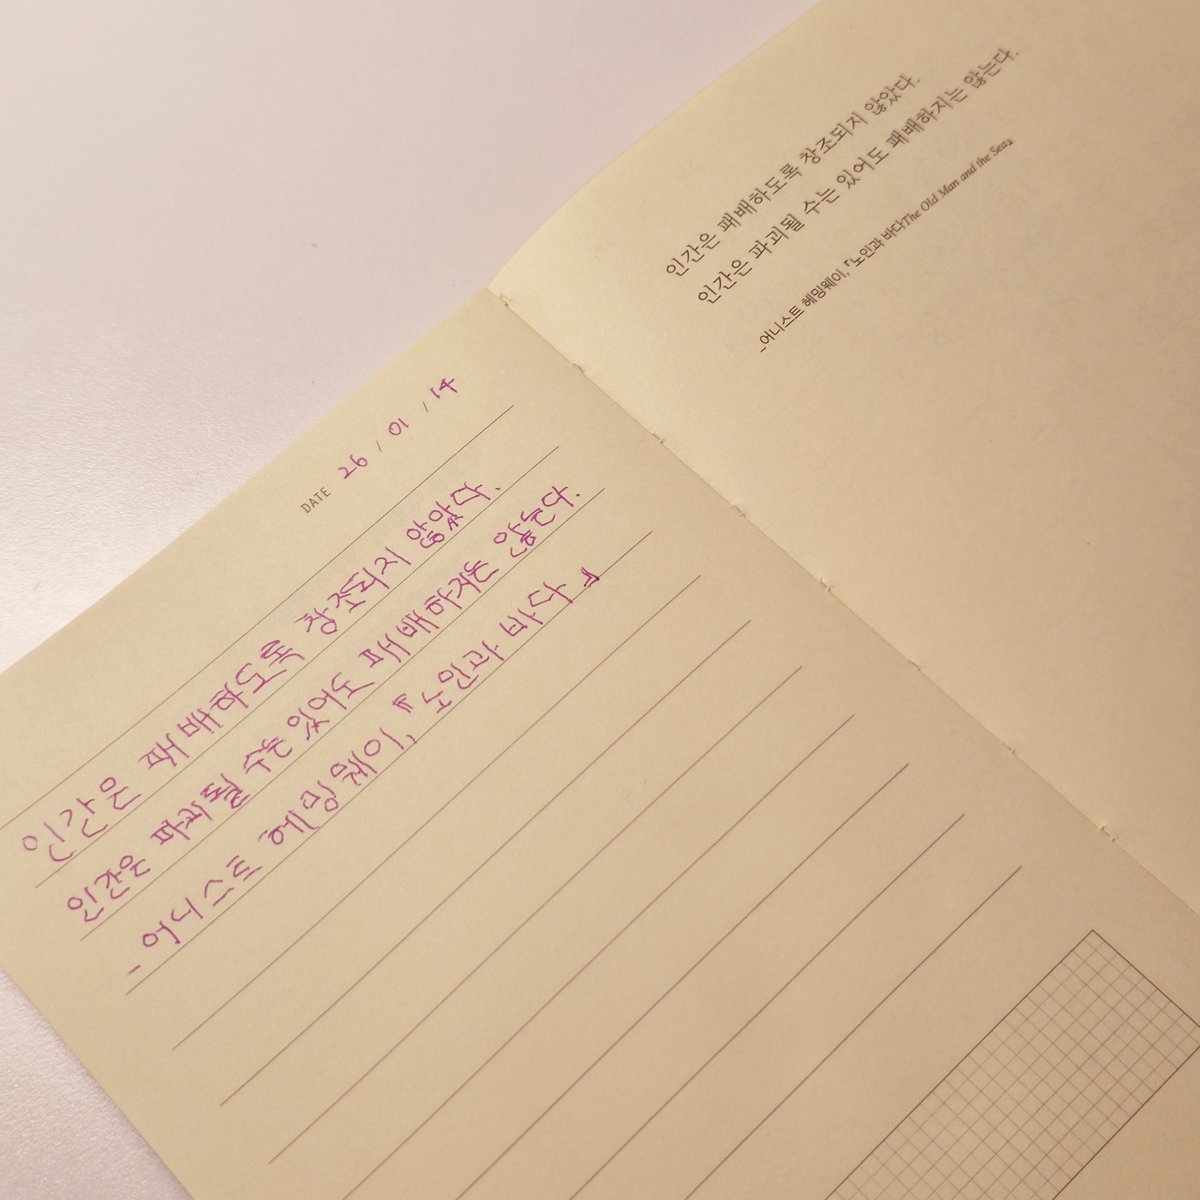 DATE 26 / 01 / 14
인간은 패배하도록 창조되지 않았다.
인간은 파괴될 수는 있어도 패배하지는 않는다.
- 어니스트 헤밍웨이, 『노인과 바다』
인간은 패배하도록 창조되지 않았다.
인간은 파괴될 수는 있어도 패배하지는 않는다.
_어니스트 헤밍웨이, 『노인과 바다The Old Man and the Sea』